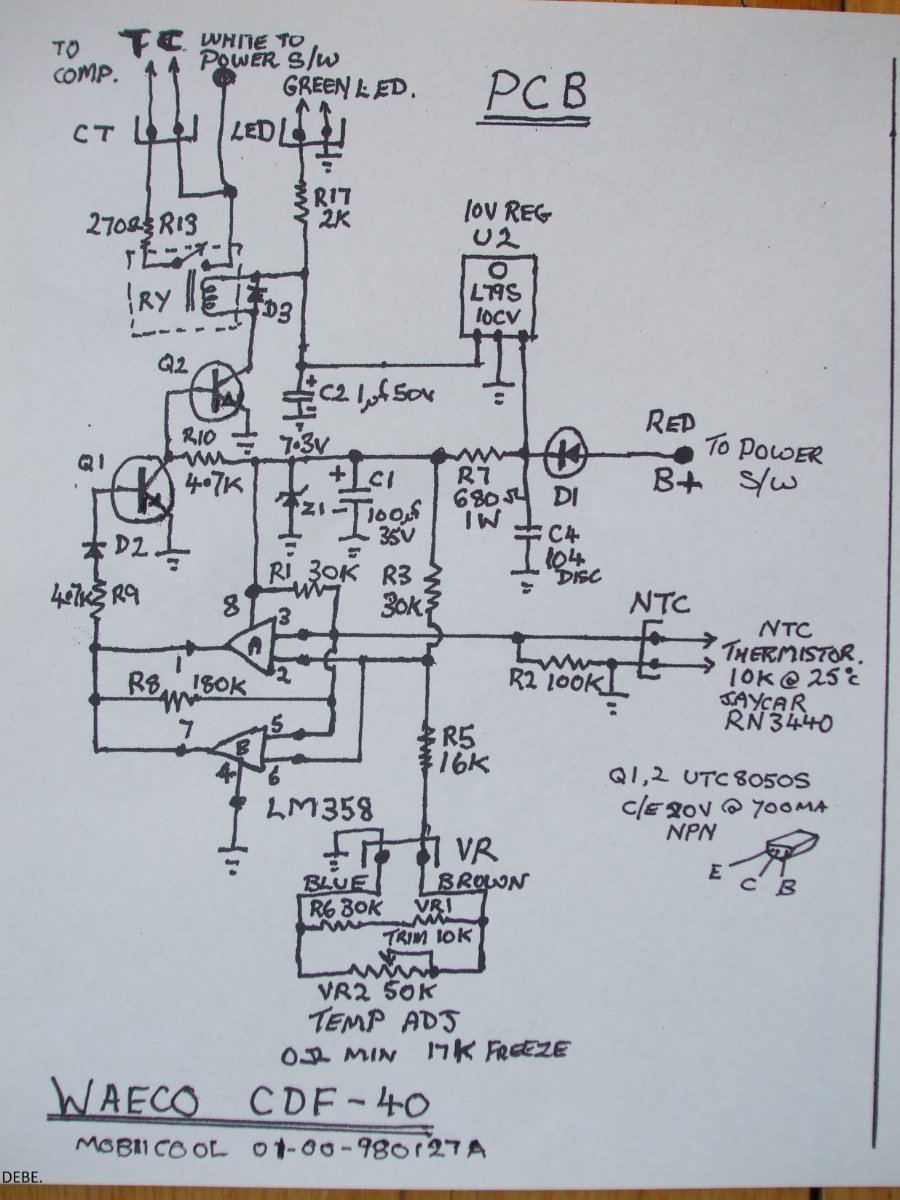 TO
COMP.
T C
WHITE TO
POWER S/W
GREEN LED.
PCB
CT
LED
R17
2K
270Ω R13
10V REG
U2
L79S
10CV
RY
D3
Q2
C2 1µf 50V
R10
4.7K
7.3V
RED
TO POWER
S/W
B+
D1
Q1
Z1
C1
100µf
35V
R7
680Ω
1W
C4
104
DISC
D2
R1 30K
R3
30K
4.7K R9
8
3
A
1
2
NTC
NTC
THERMISTOR.
10K @ 25°C
JAYCAR
RN3440
R2 100K
R8 180K
7
5
B
4
6
R5
16K
LM358
Q1,2 UTC8050S
C/E 20V @ 700MA
NPN
E C B
VR
BLUE
BROWN
R6 30K
VR1
TRIM 10K
VR2 50K
TEMP ADJ
0Ω MIN 17K FREEZE
WAECO CDF-40
MOBIICOOL 01-00-980127A
DEBE.